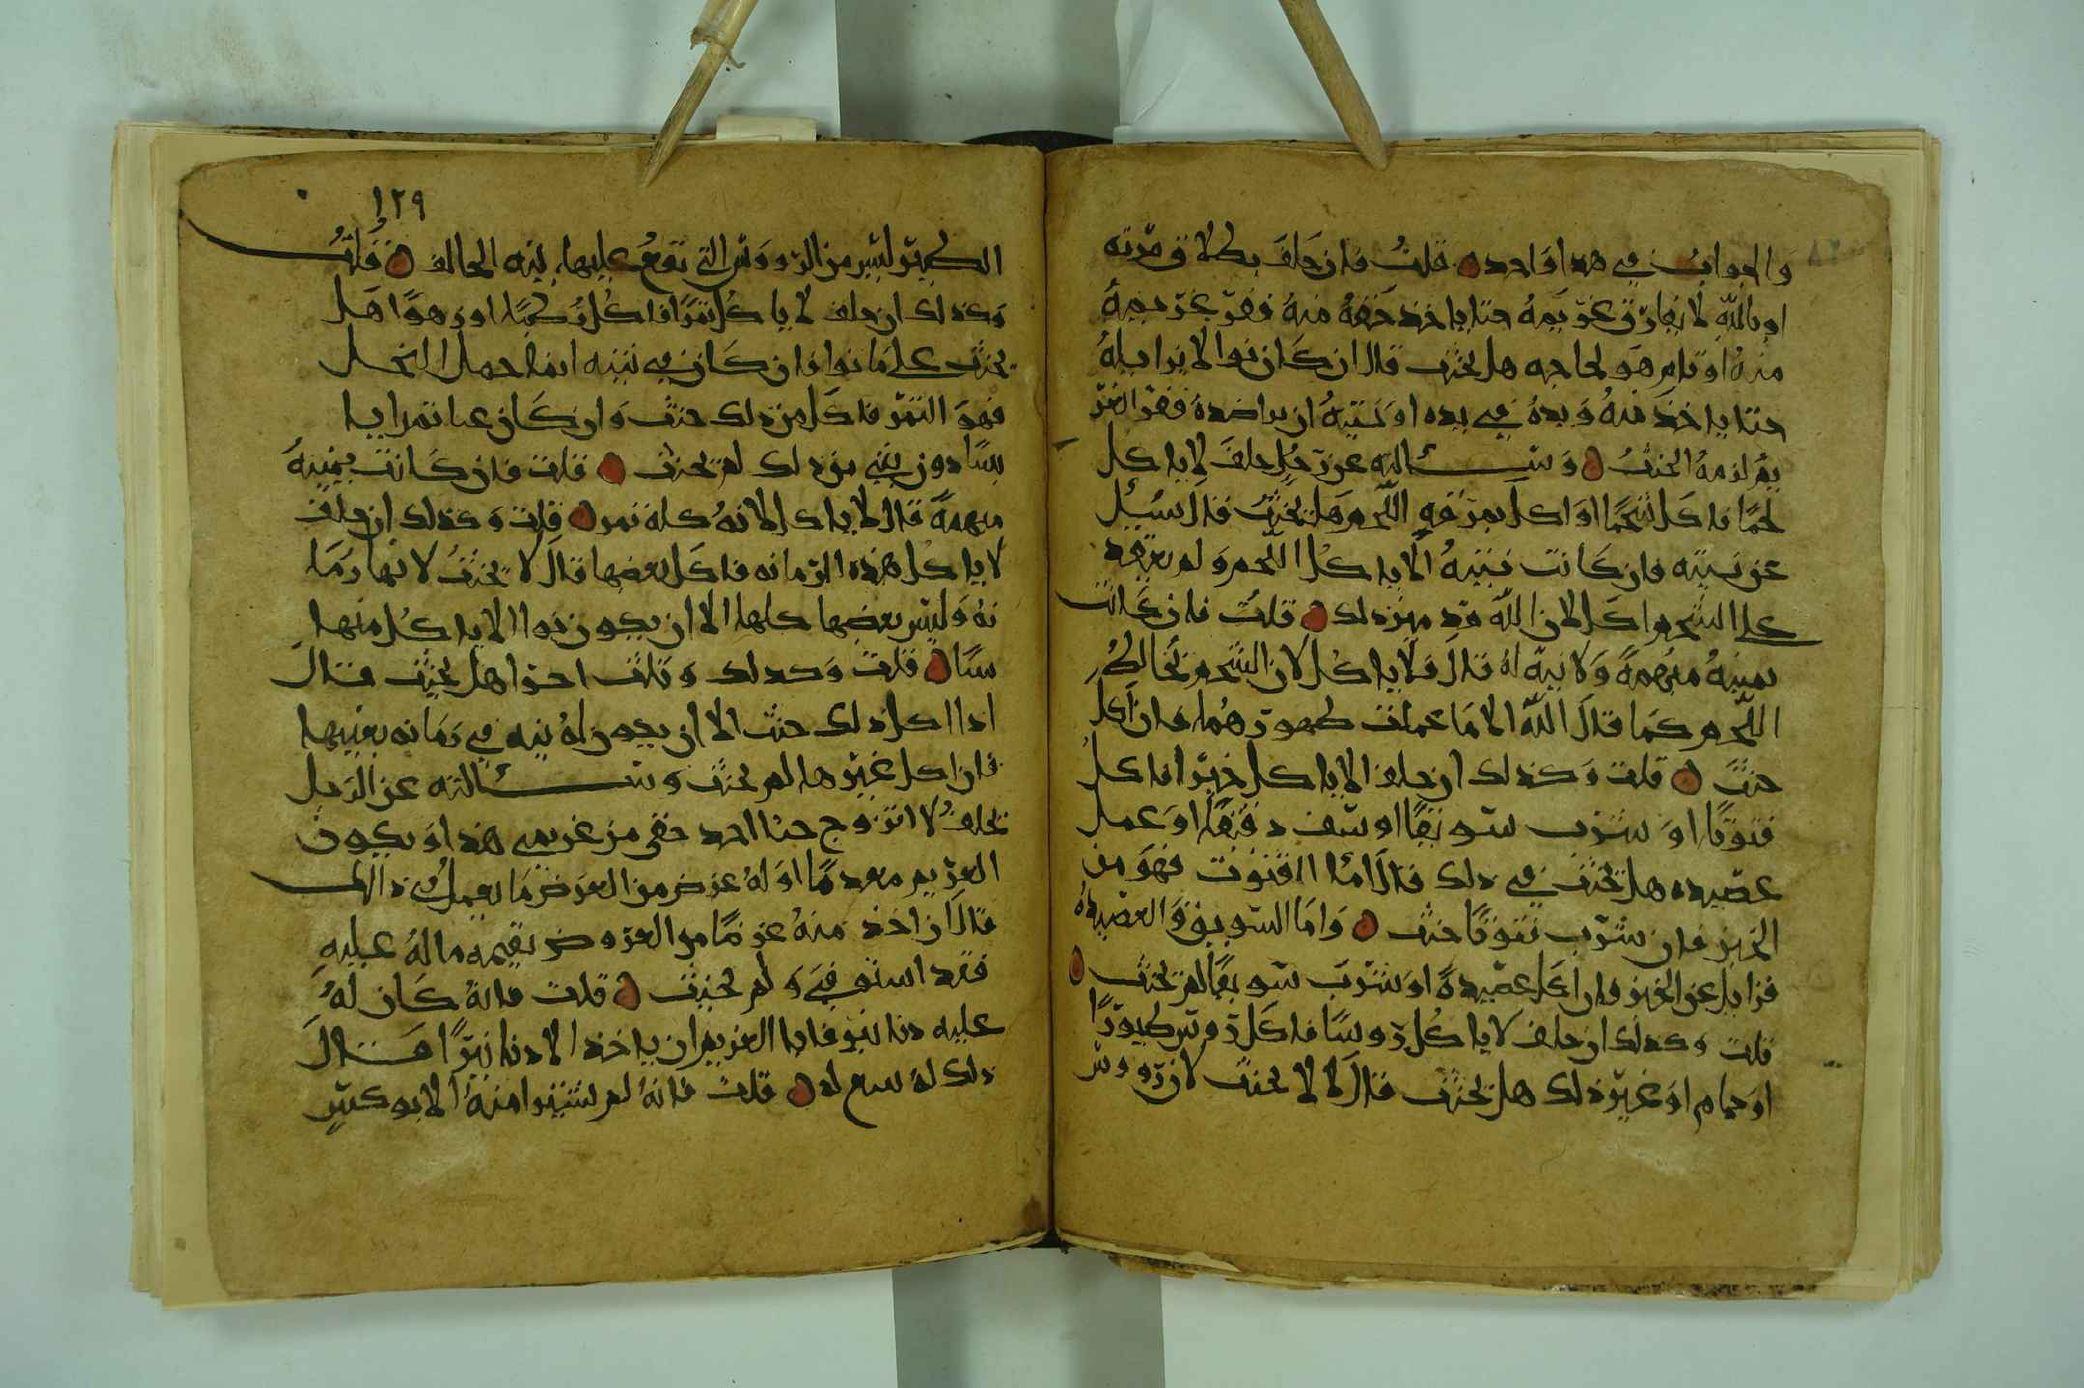 والجواب في هذا واحد قلت فان حلف بطلاق مرته
او بالله لا يفارق غريمه حتا ياخذ حقه منه ففر غريمه
منه او قام هو لحاجه هل يحنث قال ان كان نوا الا يزايله
حتا ياخذ منه ويده في يده او نيته ان يراصده ففر الغر
يم لزمه الحنث وسألته عن رجل حلف لا ياكل
لحما فاكل شحما او اكل بمرقه اللحم هل يحنث قال سيل
عن نيته فان كانت نيته الا ياكل اللحم ولم يعتقد
علا الشحم اكل لان الله قد ميز ذلك قلت فان كانت
يمينه مبهمة ولا نيه له قال فلا ياكل لان الشحم يخالط
اللحم كما قال الله الا ما حملت ظهورهما فان اكل
حنث قلت وكذلك ان حلف الا ياكل خبزا فاكل
فتوتا او شرب سويقا او سف دقيقا او عمل
عصيده هل يحنث في ذلك قال اما الفتوت فهو من
الخبز فان شرب فتوتا حنث واما السويق والعصيده
فزايل عن الخبز فان اكل عصيدة او شرب سويقا لم يحنث
قلت وكذلك ان حلف لا ياكل روسا فاكل روس طيورا
او حمام او غير ذلك هل يحنث قال لا لا يحنث لان روس
١٢٩
الطير ليس من الروس التي تقع عليها نيه الحالف قلت
وكذلك ان حلف لا ياكل تمرا فاكل رطبا او زهوا هل
يحنث علا ما نوا فان كان في نيته انما حمل النخل
فهو التمر فاكل من ذلك حنث وان كان عنا تمرا يا
بسا دون شي من ذلك لم يحنث قلت فان كانت يمينه
مبهمة قال لا ياكل لانه كله تمر قلت وكذلك ان حلف
لا ياكل هذه الرمانه فاكل بعضها قال لا يحنث لانها رما
نه وليس بعضها كلها الا ان يكون نوا الا ياكل منها
شيا قلت وكذلك وثلث اجزا هل يحنث قال
اذا اكل ذلك حنث الا ان يكون له نيه في رمانه بعينها
فان اكل غيرها لم يحنث وسألته عن الرجل
يحلف لا اتزوج حتا اخذ حقي من غريمي هذا او يكون
الغريم معدما او له عرض من العرض ما يعمل في ذالك
قال ان اخذ منه عرضا من العروض بقيمه ماله عليه
فقد استوفى ولم يحنث قلت فانه كان له
عليه دنانير فابا الغريم ان ياخذ الا دنانيرا قال
ذلك له سع له قلت فانه لم يشترا منه الا بوكثير